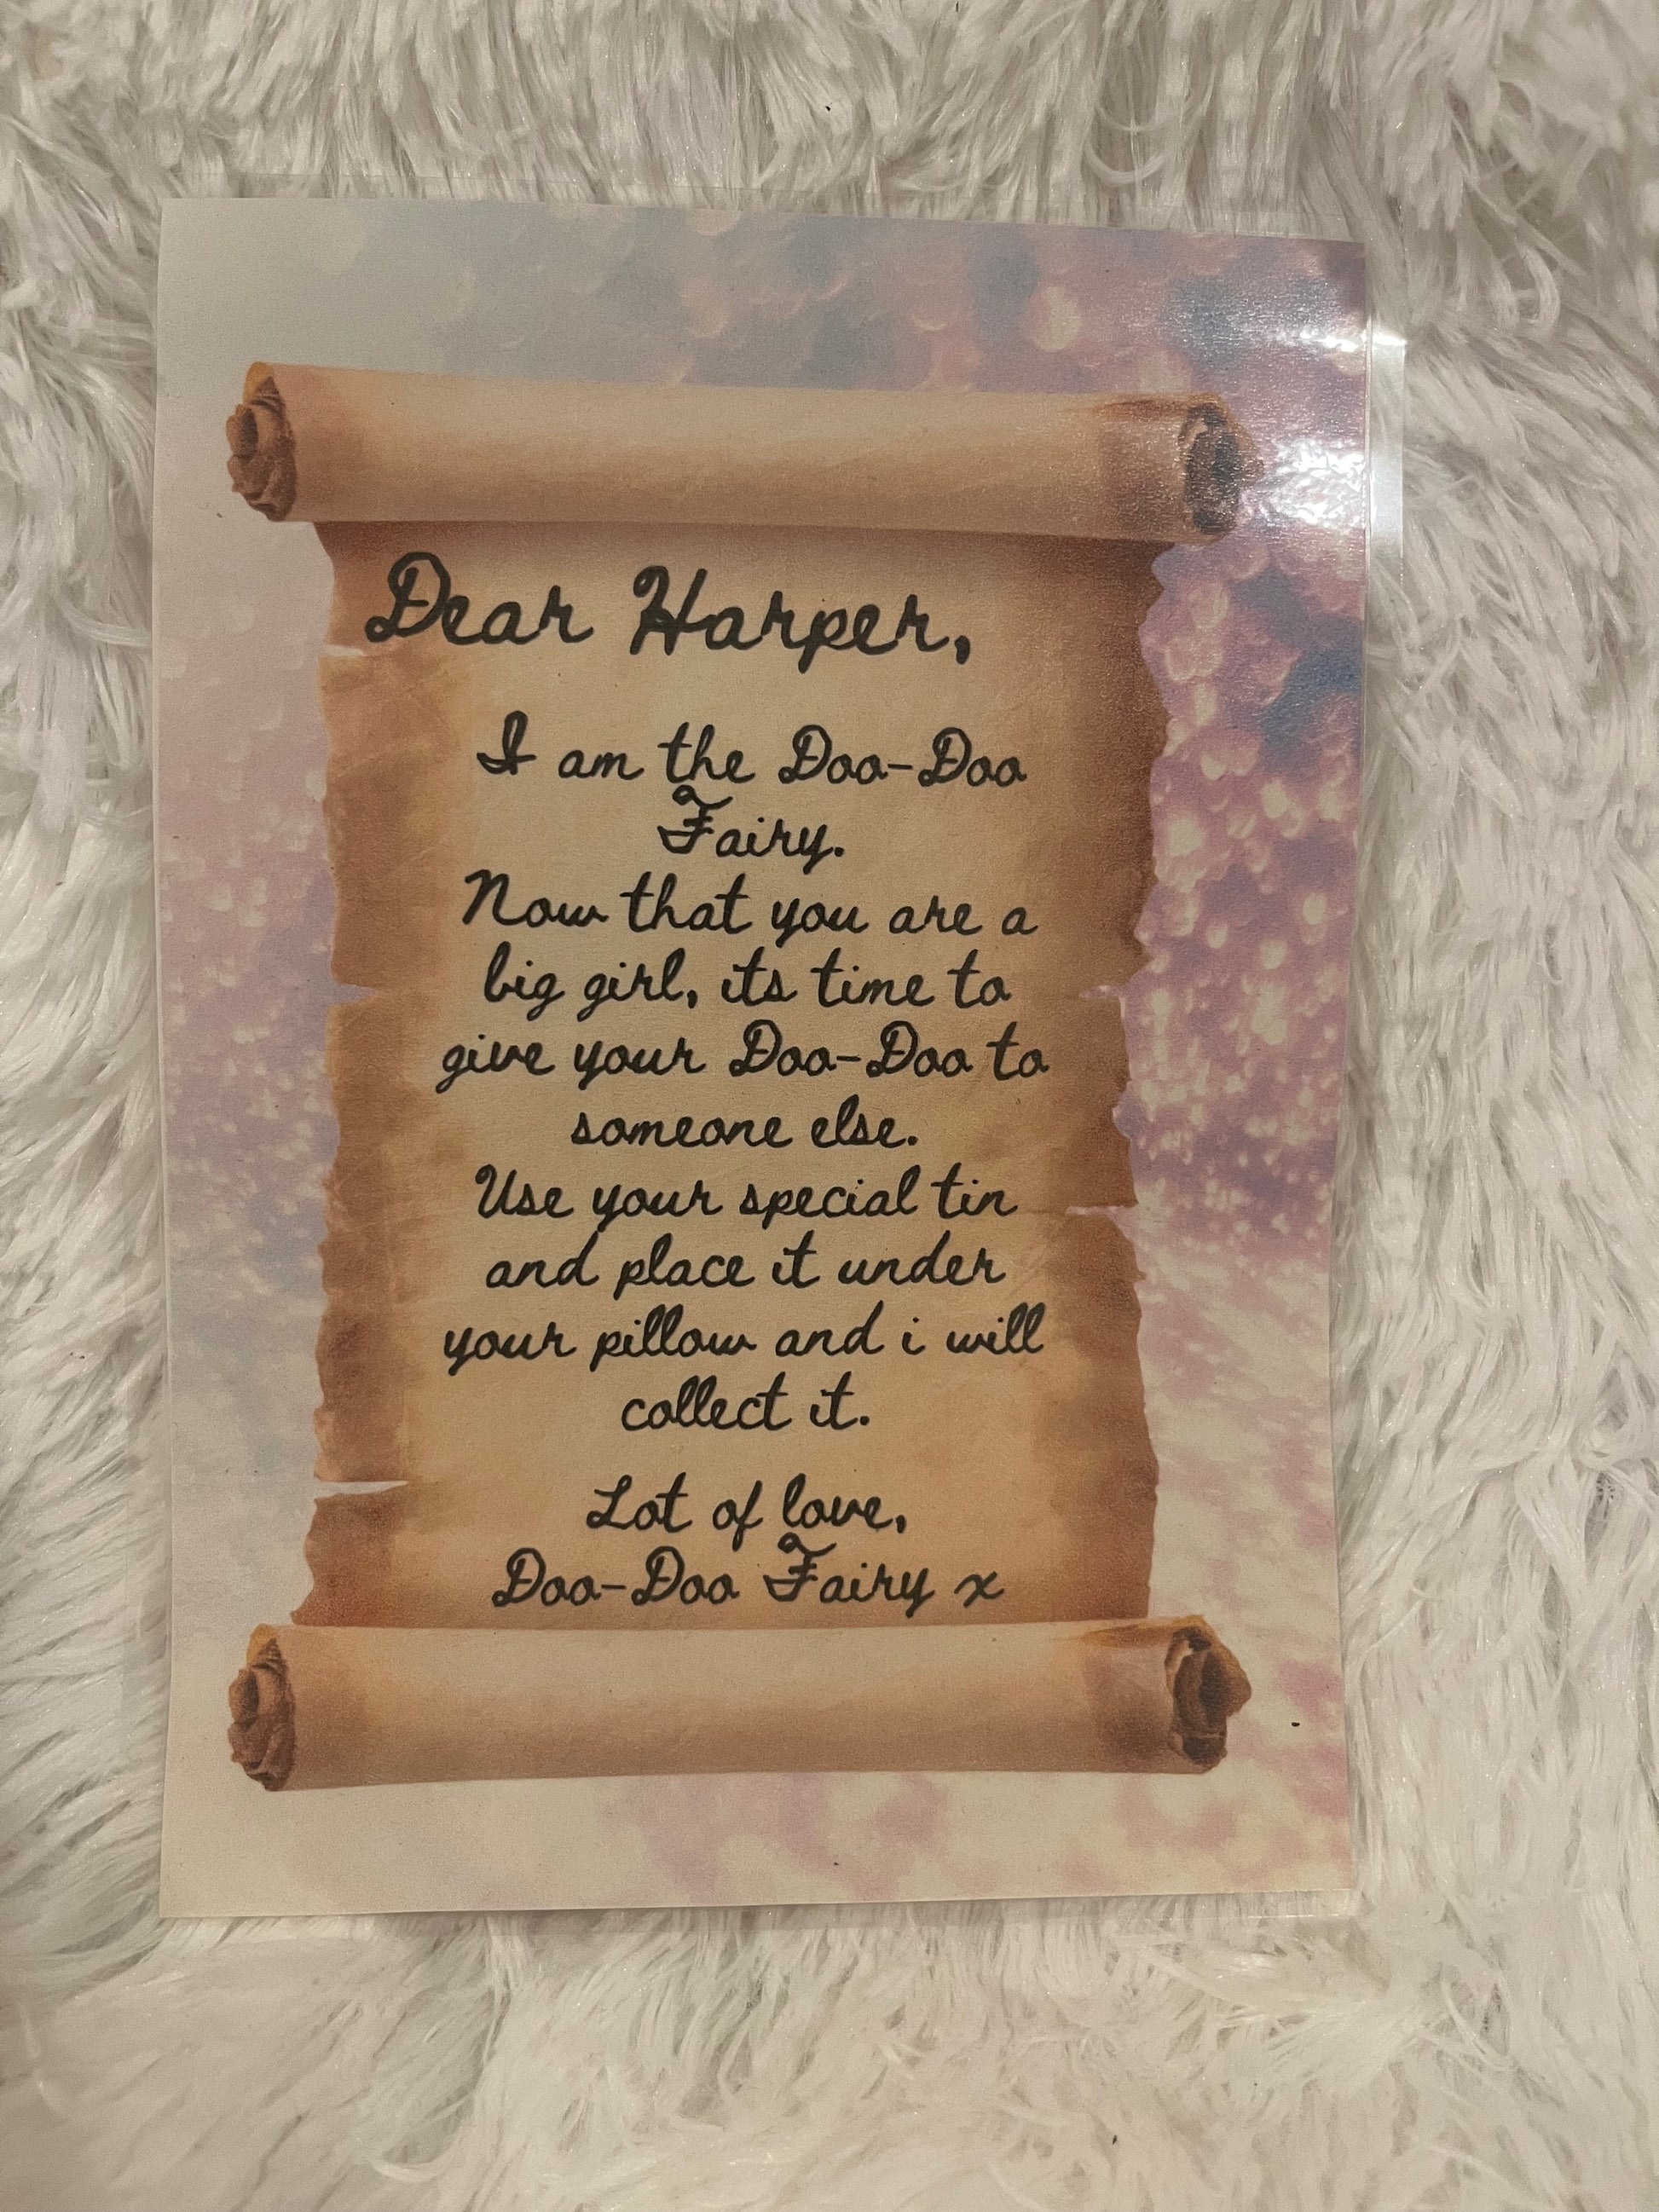 Dear Harper,
I am the Doo-Doo
Fairy.
Now that you are a
big girl, its time to
give your Doo-Doo to
someone else.
Use your special tin
and place it under
your pillow and i will
collect it.
Lot of love,
Doo-Doo Fairy x